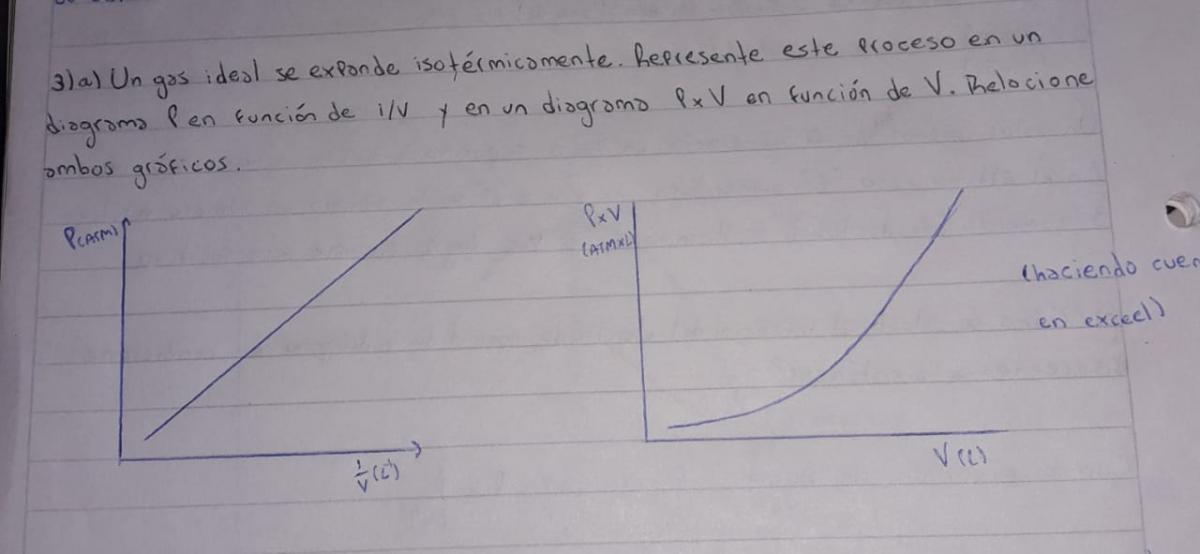 3)a) Un gas ideal se expande isotérmicamente. Represente este proceso en un
diagrama P en función de 1/V y en un diagrama PxV en función de V. Relacione
ambos gráficos.
P(ATM)
PxV
(ATMxL)
(haciendo cuen
en exceel)
1/V (L⁻¹)
V (L)